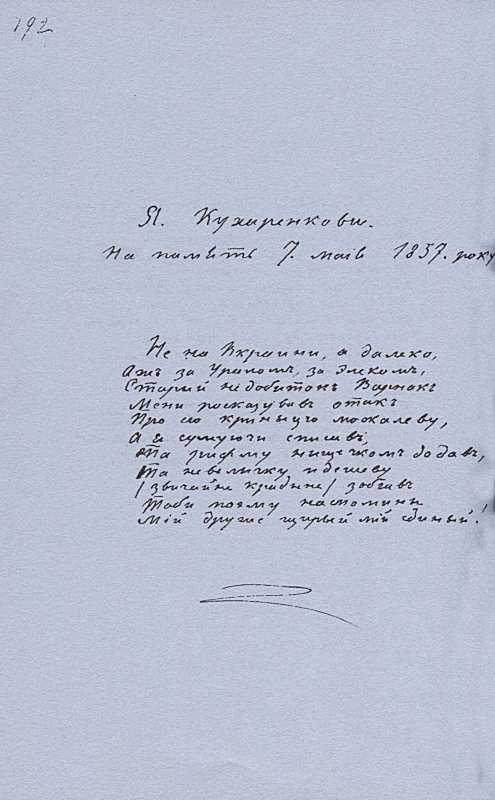 192
Я. Кухаренкови.
На памъять 7. маія 1857. року
Не на Вкраини, а далеко,
Ажъ за Ураломъ, за Элекомъ,
Старый недобитокъ Варнакъ
Мени росказувавъ отакъ
Про сю криныцю москалеву,
А я сумуючи списавъ,
Та рифму нищечкомъ додавъ,
Та невеличку и дешеву
/ звичайне крадене / зобгавъ
Тоби поэму на спомины
Мій друже щирый мій єдиный!